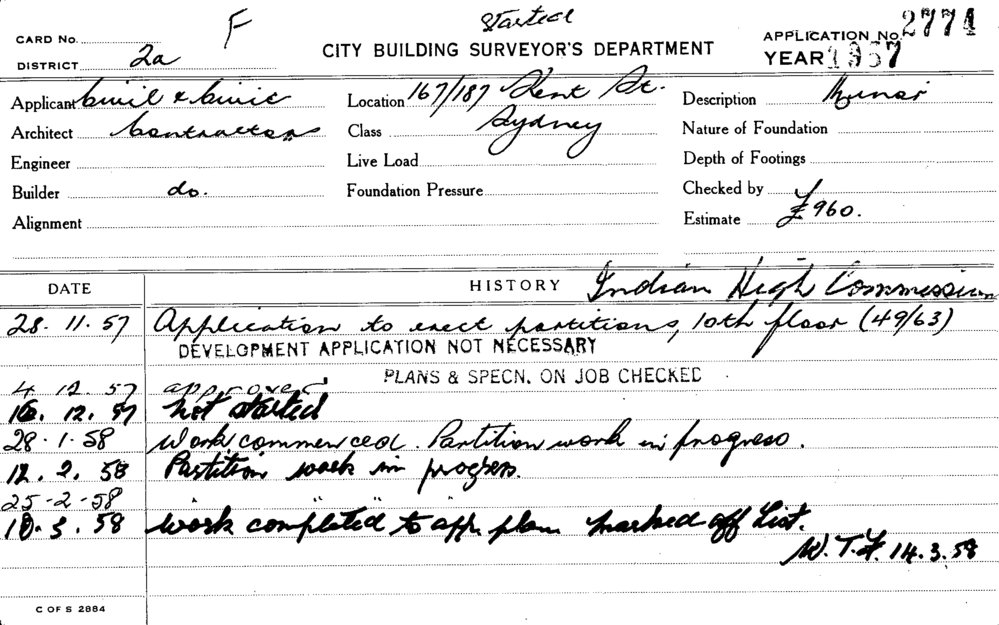 F Started
CARD No. CITY BUILDING SURVEYOR'S DEPARTMENT APPLICATION No. 2774
DISTRICT 2a YEAR 1957
Applicant Civil & Civic Location 167/187 Kent St. Description Minor
Architect Contractors Class Sydney Nature of Foundation
Engineer Live Load Depth of Footings
Builder do. Foundation Pressure Checked by
Alignment Estimate £960.
DATE HISTORY Indian High Commission
28.11.57 Application to erect partitions, 10th floor (49/63)
DEVELOPMENT APPLICATION NOT NECESSARY
PLANS & SPECN. ON JOB CHECKED
4.12.57 approved
16.12.57 Not started
28.1.58 Work commenced. Partition work in progress.
12.2.58 Partition work in progress.
25-2-58 " " "
10.3.58 Work completed to app. plan marked off List.
W.T.F. 14.3.58
C OF S 2884